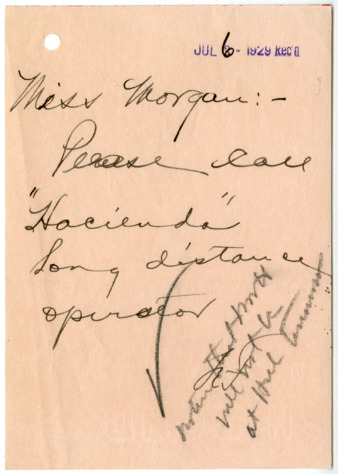 JUL 6 - 1929 Rec'd
Miss Morgan:-
Please call
"Hacienda"
Long distance
operator
that Mr. H
will not be
at Hill tomorrow